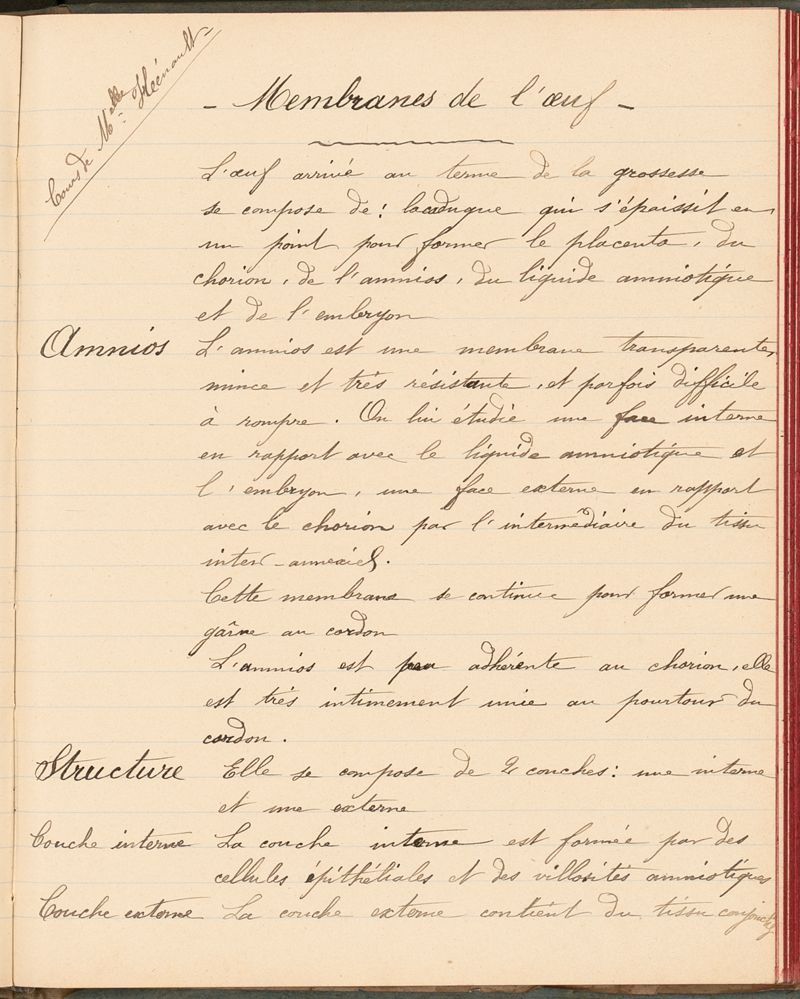 Cours de Melle Héénault
- Membranes de l'œuf -
L'œuf arrivé au terme de la grossesse
se compose de : la caduque qui s'épaissit en
un point pour former le placenta, du
chorion, de l'amnios, du liquide amniotique
et de l'embryon
Amnios L'amnios est une membrane transparente,
mince et très résistante, et parfois difficile
à rompre. On lui étudie une face interne
en rapport avec le liquide amniotique et
l'embryon, une face externe en rapport
avec le chorion par l'intermédiaire du tissu
inter-annexiel.
Cette membrane se continue pour former une
gâine au cordon
L'amnios est peu adhérente au chorion, elle
est très intimement unie au pourtour du
cordon.
Structure Elle se compose de 2 couches : une interne
et une externe
Couche interne La couche interne est formée par des
cellules épithéliales et des villosités amniotiques
Couche externe La couche externe contient du tissu conjonctif